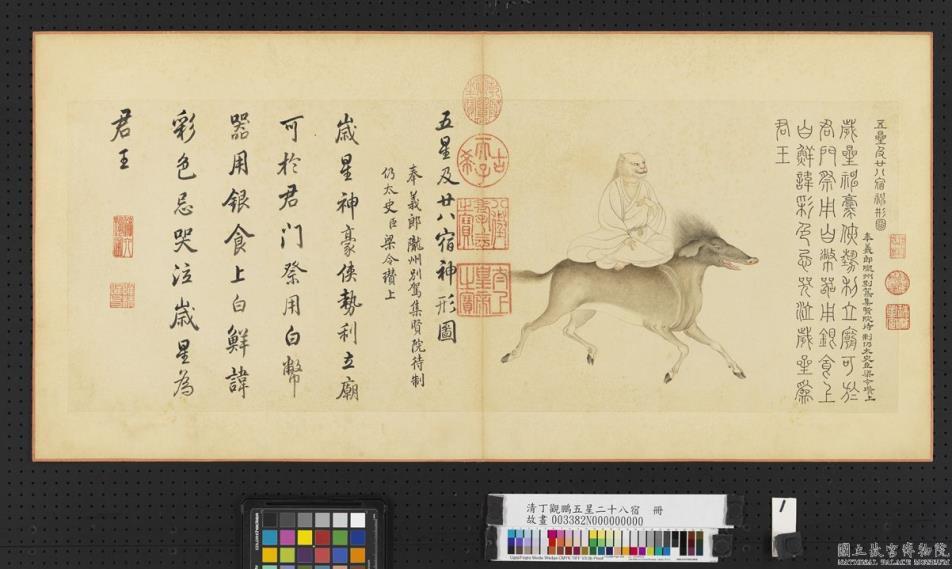 五星及廿八宿神形圖
奉義郎隴州别駕集賢院待制仍太史臣梁令瓚上
歲星神豪俠勢利立廟可於
君門祭用白幣器用銀食上
白鮮諱彩色忌哭泣歲星為
君王
五星及廿八宿神形圖
奉義郎隴州别駕集賢院待制
仍太史臣梁令瓚上
歲星神豪俠勢利立廟
可於君門祭用白幣
器用銀食上白鮮諱
彩色忌哭泣歲星為
君王
古希天子
八徵耄念之寶
太上皇帝之寶
清丁觀鵬五星二十八宿 冊
故畫 003382N000000000
1
國立故宮博物院
NATIONAL PALACE MUSEUM